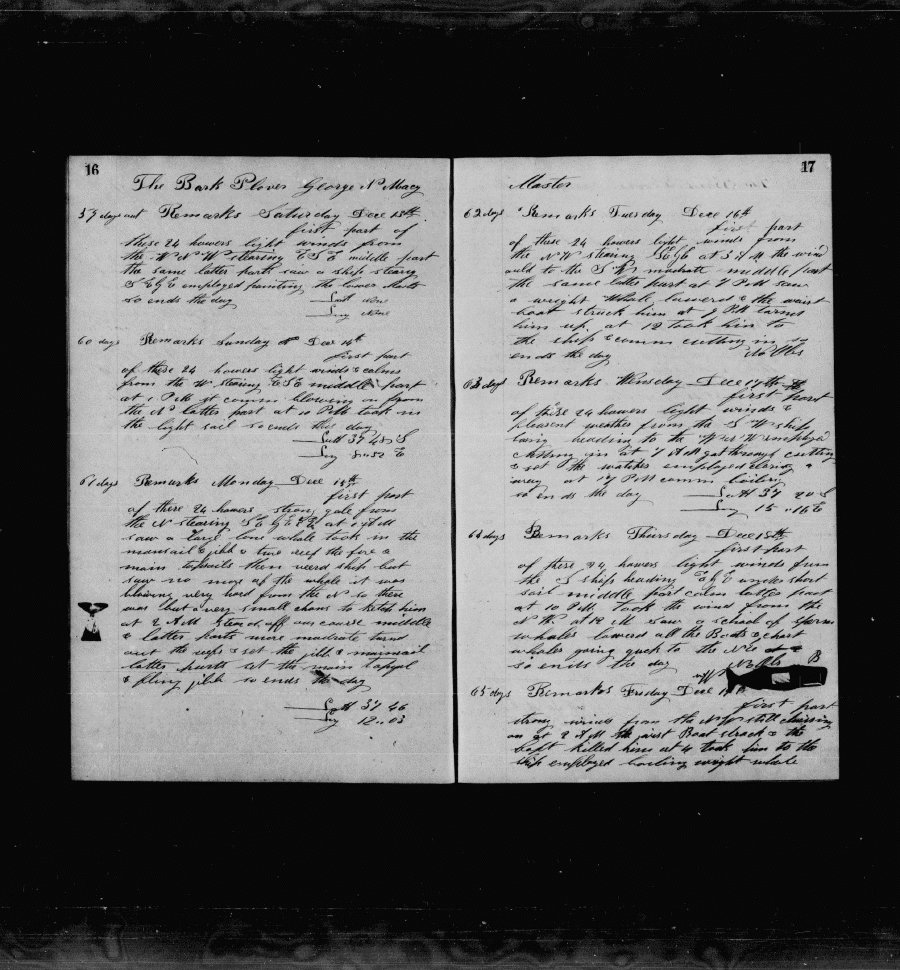 16
The Bark Plover George N Macy
59 days out Remarks Saturday Dece 13th
first part of
these 24 howers light winds from
the W N W stearing E S E middle part
the same latter part saw a ship stearing
S E by E employed painting the lower Masts
so ends the day
Latt non
Long none
60 days Remarks Sunday Dec 14th
first part
of these 24 howers light winds & calms
from the W stearing E S E middle part
at 1 P M it comm blowing on from
the N latter part at 10 P M took in
the light sail so ends this day
Latt 39 43 S
Long 8 52 E
61 days Remarks Monday Dece 15th
first part
of these 24 howers strong gale from
the N stearing S E by E at A M
saw a large lone whale took in the
mansail & jibb & two reef the fore &
main topsails then weerd ship but
saw no more of the whale it was
blowing very hard from the N so there
was but a very small chans to ketch him
at 2 A M steard off our course middle
& latter parts more modrate turnd
out the reefs & set the jibb & mainsail
latter parts set the main topgal
& fling jibb so ends the day
Latt 37 46
Long 12 03
17
Master
62 days Remarks Tuesday Dece 16th
first part
of these 24 howers light winds from
the N W stearing S E by E at 3 A M the wind
auld to the S W modrate middle part
the same latter part at 7 P M saw
a wright Whale lowerd & the waist
boat struck him at P M turned
him up at 12 took him to
the ship & comm cutting in so
ends the day No Obs
63 days Remarks Wensday Dece 17th
first part
of these 24 howers light winds &
pleasent weather from the S W ship
laing heading to the W employed
cutting in at 7 A M got through cutting
& set the watches employed clearing
away at P M comm boiling
so ends the day Latt 37 20 S
Long 15 16 E
64 days Remarks Thursday Dece 18th
first part
of these 24 howers light winds from
the S ship heading E by E under short
sail middle part calm latter part
at 10 P M took the wind from the
N W at 12 M saw a school of Sperm
whales lowerd all the Boats & chast
whales going quick to the
so ends the day No Obs
B
65 days Remarks Friday Dece 19th
first part
strong winds from the N W still chaising
on at 2 A M the wist Boat struck & the
killed him at 4 took him to the
ship employed boiling wright whale